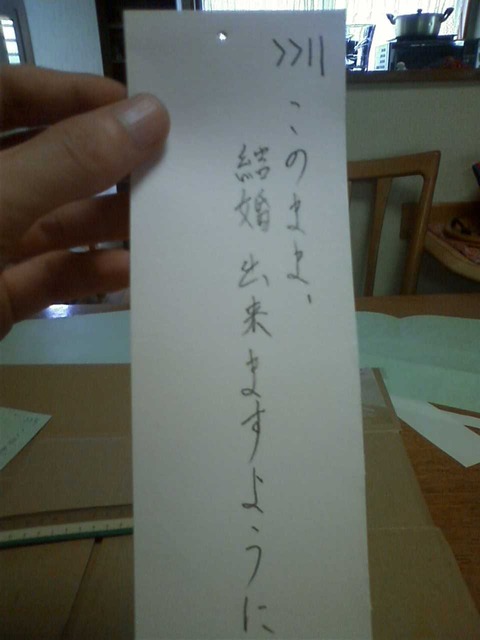 >>11
このまま、
結婚出来ますように